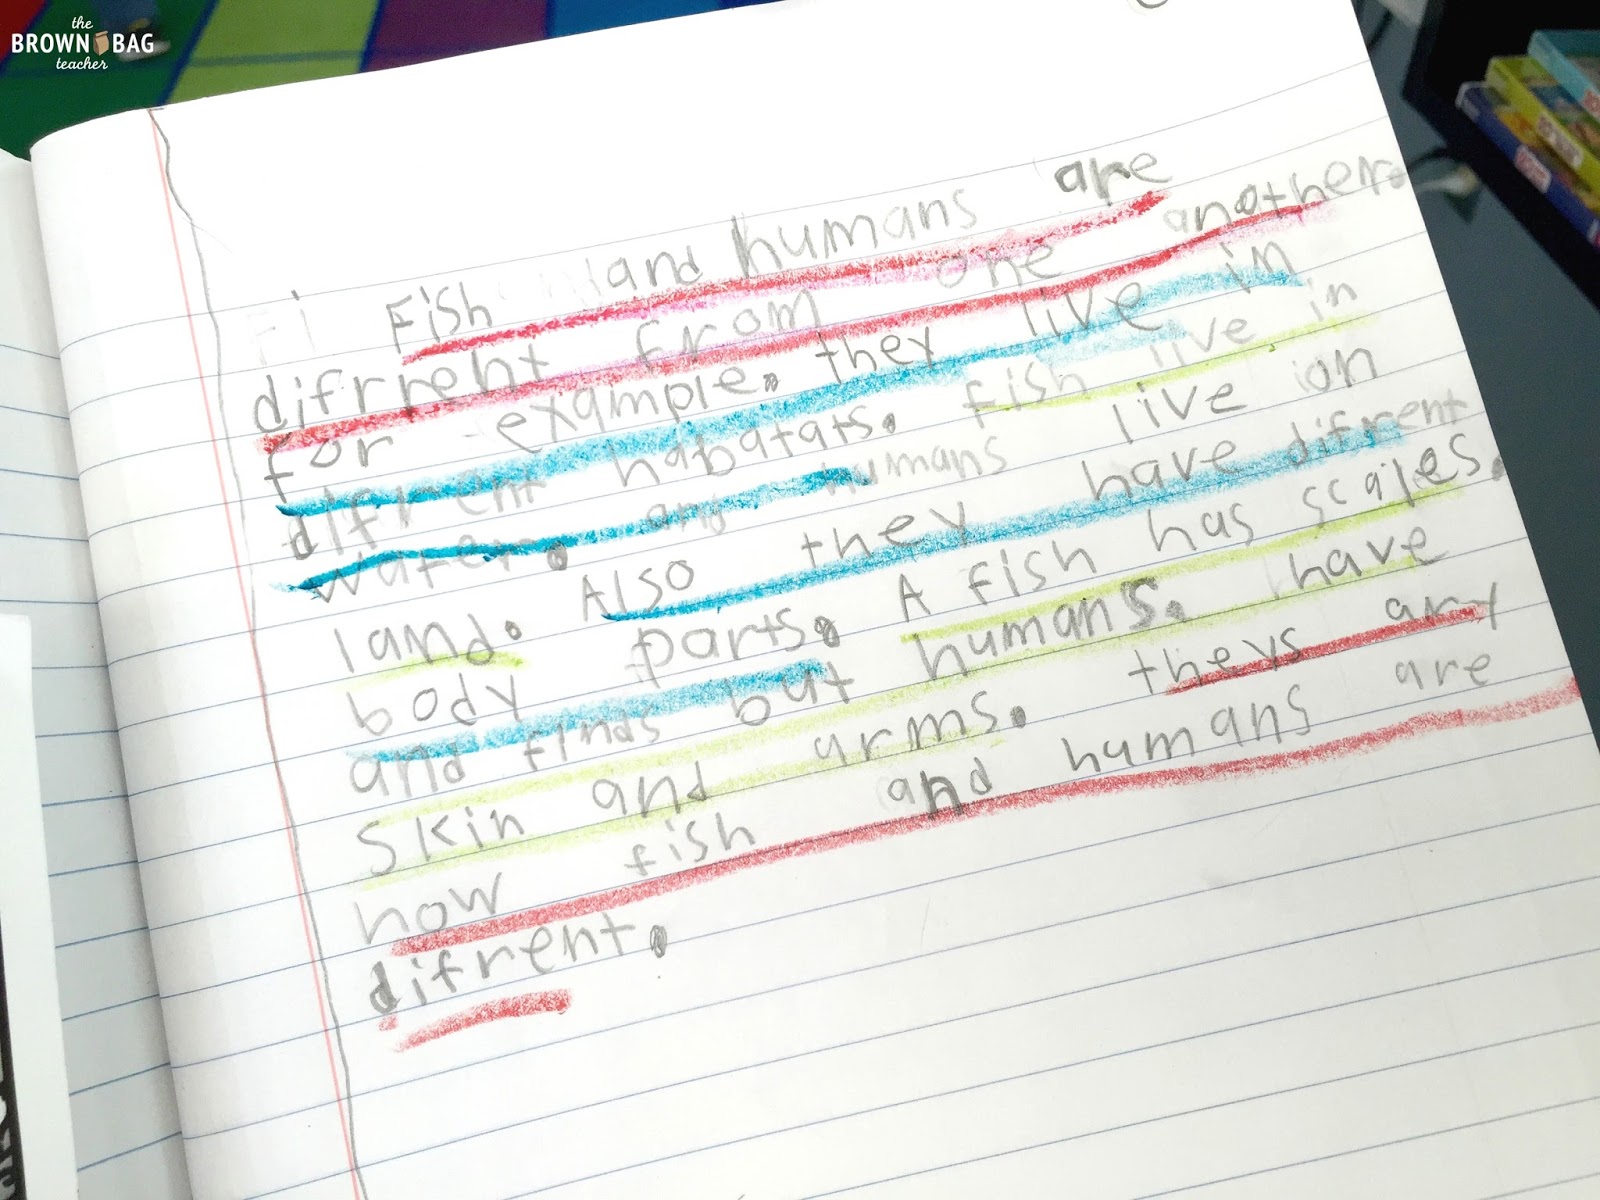 the
BROWN BAG
teacher
Fi Fish and humans are
difrrent from one another
for example. they live in
difrrent habatats. fish live in
water. and humans live on
land. Also they have difrent
body parts. A fish has scales.
and finds but humans. have
skin and arms. theys ary
how fish and humans are
difrent.